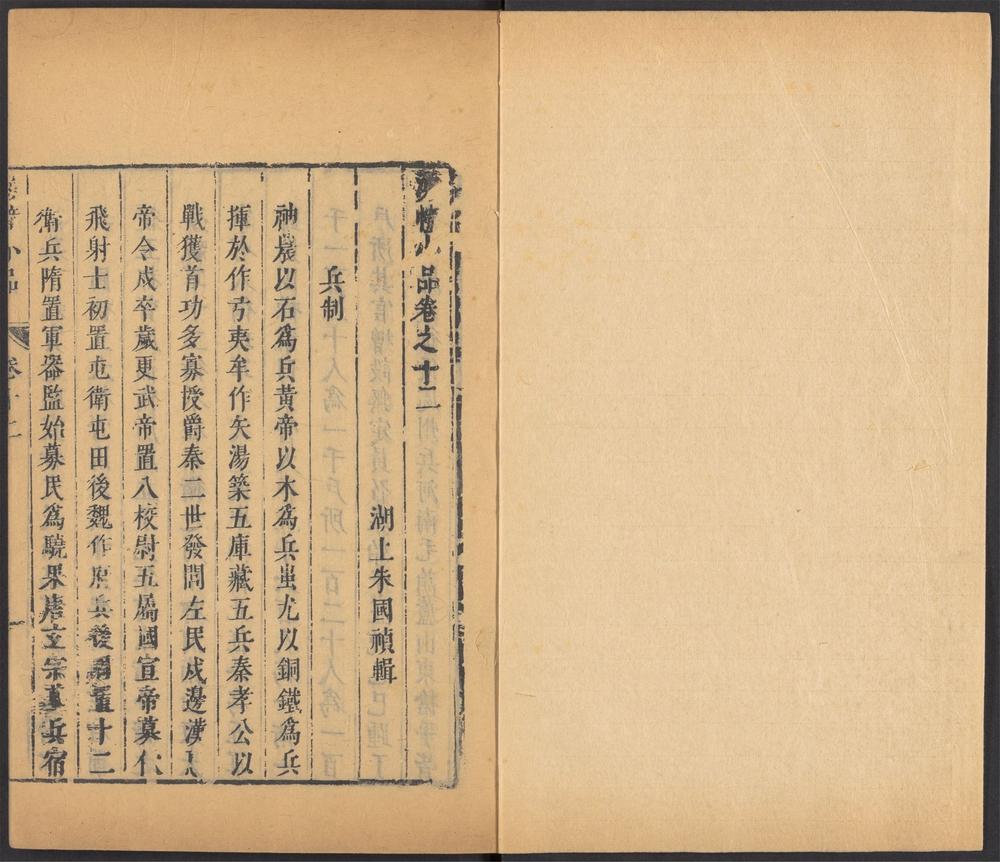 湧幢小品卷之十二
湖上朱國禎輯
兵制
神農以石爲兵黃帝以木爲兵蚩尤以銅鐵爲兵
揮於作弓夷牟作矢湯築五庫藏五兵秦孝公以
戰獲首功多寡授爵秦二世發閭左民戍邊漢
帝令戍卒歲更武帝置八校尉五屬國宣帝募
飛射士初置屯衛屯田後魏作府兵後周置十二
衛兵隋置軍器監始募民爲驍果唐玄宗募兵宿
小品 卷十二 一